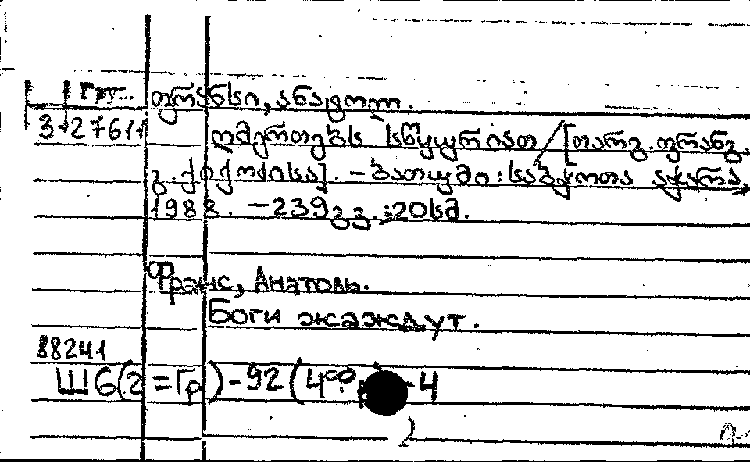 Груз.
ფრანსი, ანატოლ.
3-2761
ღმერთებს სწყურიათ / [თარგ. ფრანგ.
გ. ქიქოძისა]. – ბათუმი : საბჭოთა აჭარა,
1988. – 239 გვ. ; 20 სმ.
Франс, Анатоль.
Боги жаждут.
88241
Ш6(2=Гр)-92(4Фр)-4